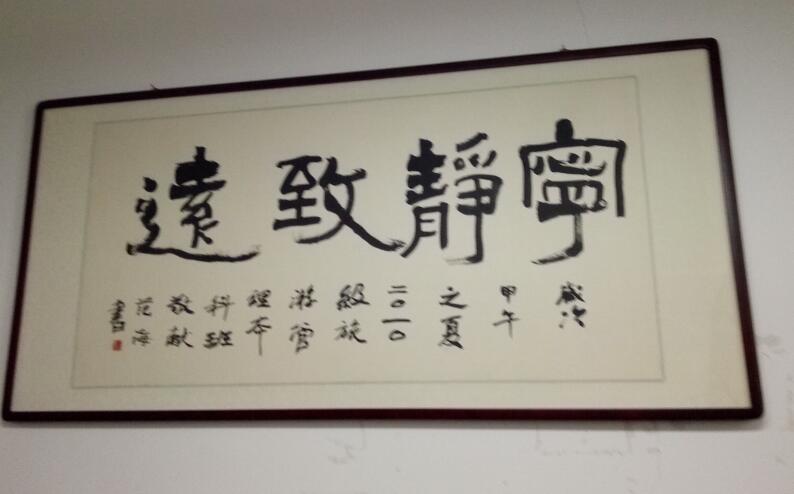 寧靜致遠
歲次
甲午
之夏
二〇一〇
級旅
游管
理本
科班
敬献
范海
書